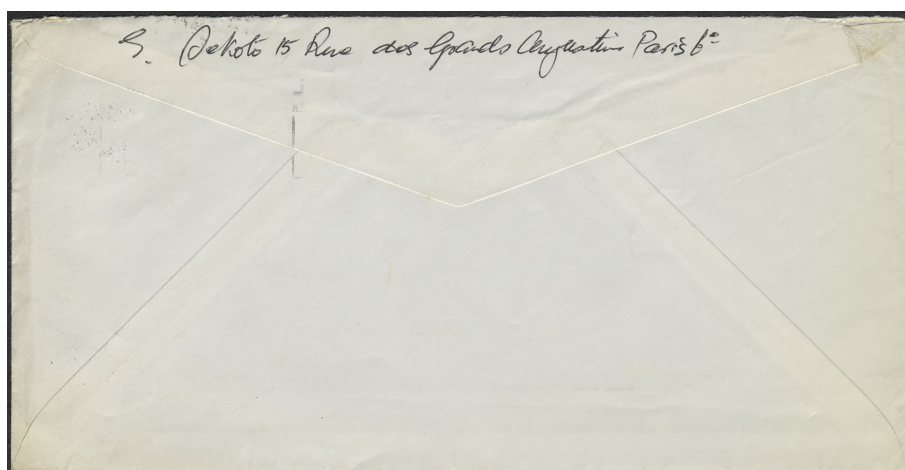 S. Dekoto 15 Rue des Grands Augustins Paris 6e